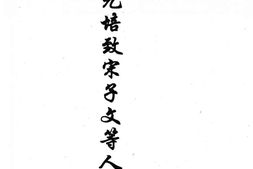 元培致宋子文等人